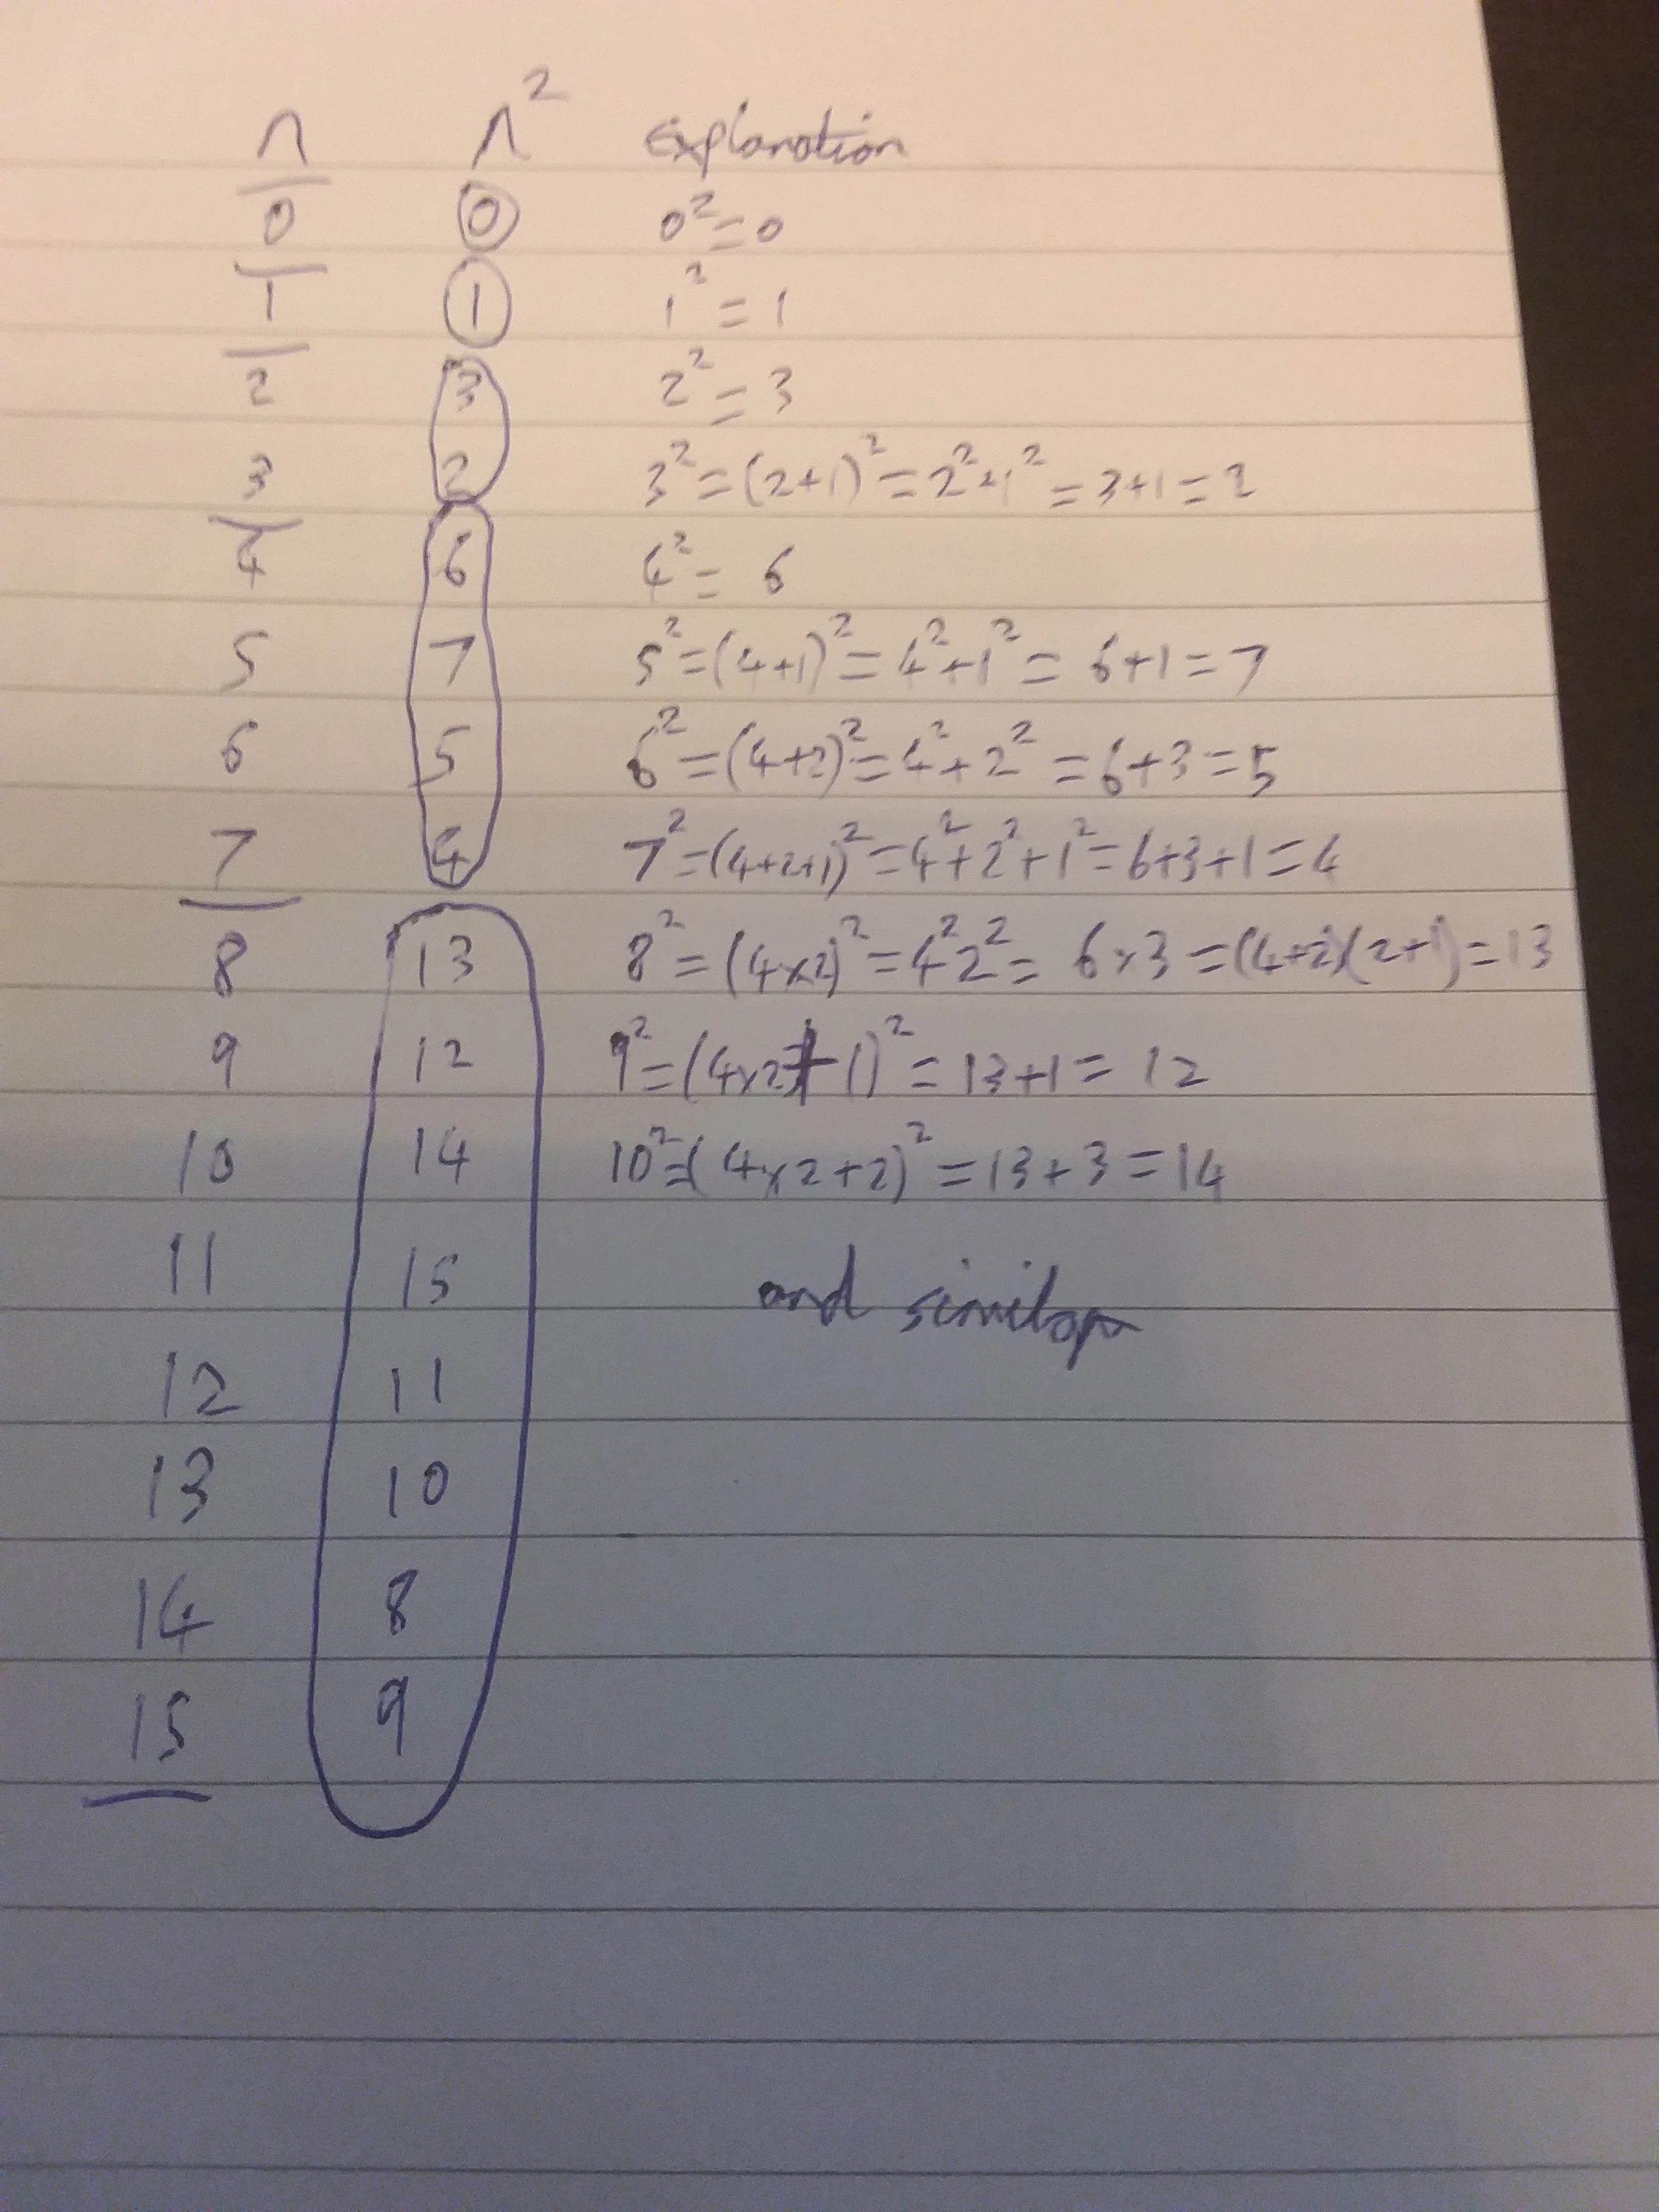 n n² explanation
0 0 0² = 0
1 1 1² = 1
2 3 2² = 3
3 2 3² = (2+1)² = 2²+1² = 3+1 = 2
4 6 4² = 6
5 7 5² = (4+1)² = 4²+1² = 6+1 = 7
6 5 6² = (4+2)² = 4²+2² = 6+3 = 5
7 4 7² = (4+2+1)² = 4²+2²+1² = 6+3+1 = 4
8 13 8² = (4×2)² = 4²2² = 6×3 = (4+2)(2+1) = 13
9 12 9² = (4×2+1)² = 13+1 = 12
10 14 10² = (4×2+2)² = 13+3 = 14
11 15 and similar
12 11
13 10
14 8
15 9